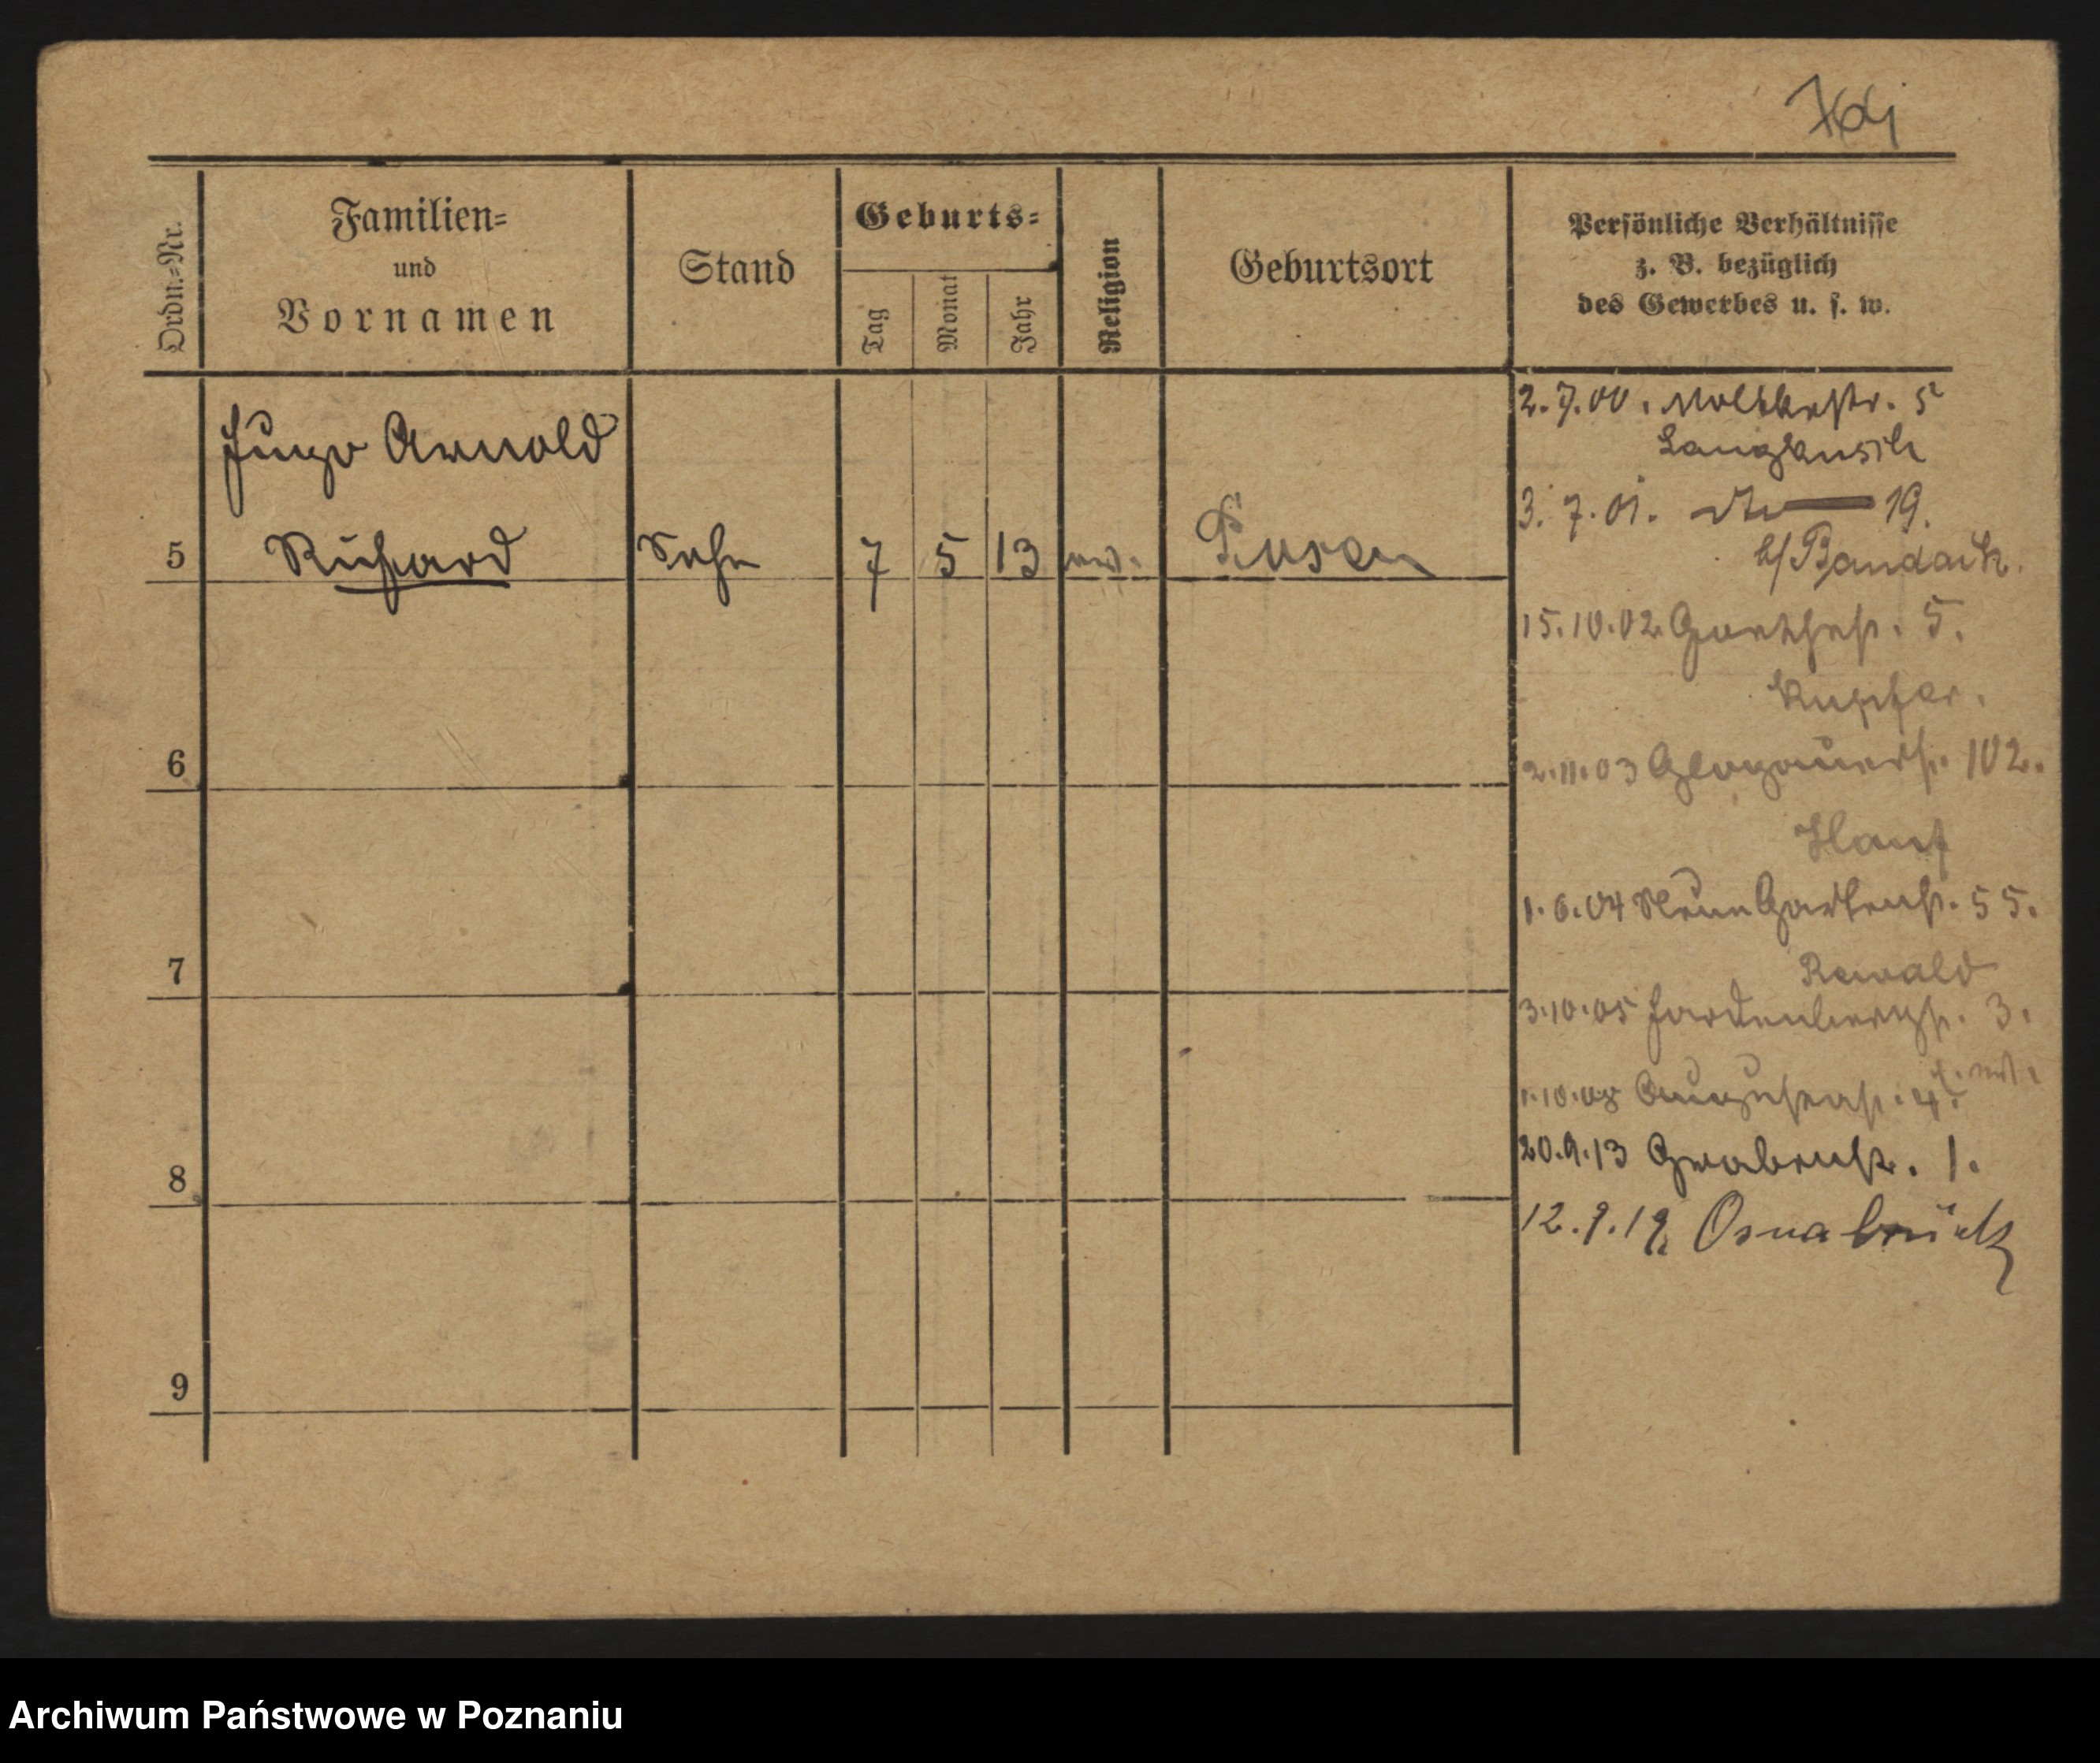 Ordn.-Nr.
Familien-
und
Vornamen
Stand
Geburts-
Tag
Monat
Jahr
Religion
Geburtsort
Persönliche Verhältnisse
z. B. bezüglich
des Gewerbes u. s. w.
Hugo Arnold
5 Richard Sohn 7 5 13 ev. Posen
6
7
8
9
2.7.00. Moltkestr. 5
3.7.01. 19.
b/ Bandach.
15.10.02. Goethestr. 5.
Kupfer.
2.11.03 Glogauerstr. 102.
Hanf
1.6.04 Neue Gartenstr. 55.
Rewald
3.10.05 Hardenbergstr. 3.
1.10.08 Augustastr. 4.
20.9.13 Grabenstr. 1.
12.9.19 Osnabrück
Archiwum Państwowe w Poznaniu